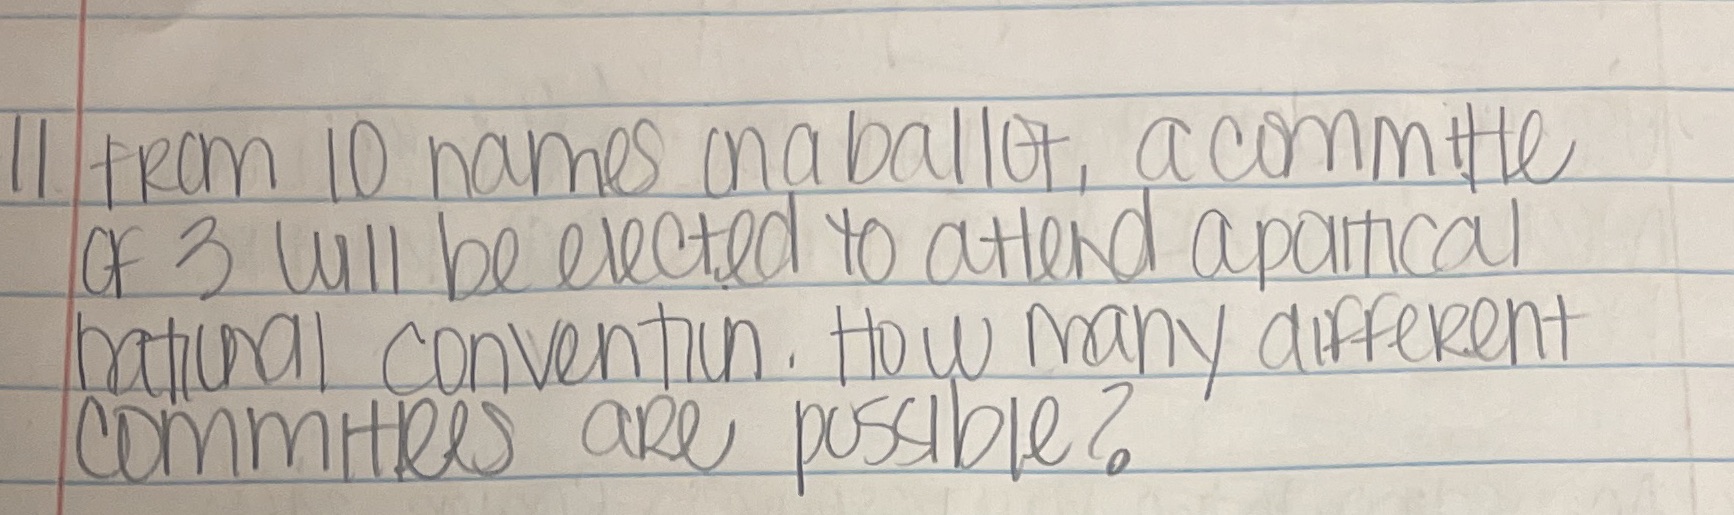 11 from 10 names on a ballot, a committe
of 3 will be elected to attend a partical
national convention. How many different
committees are possible?